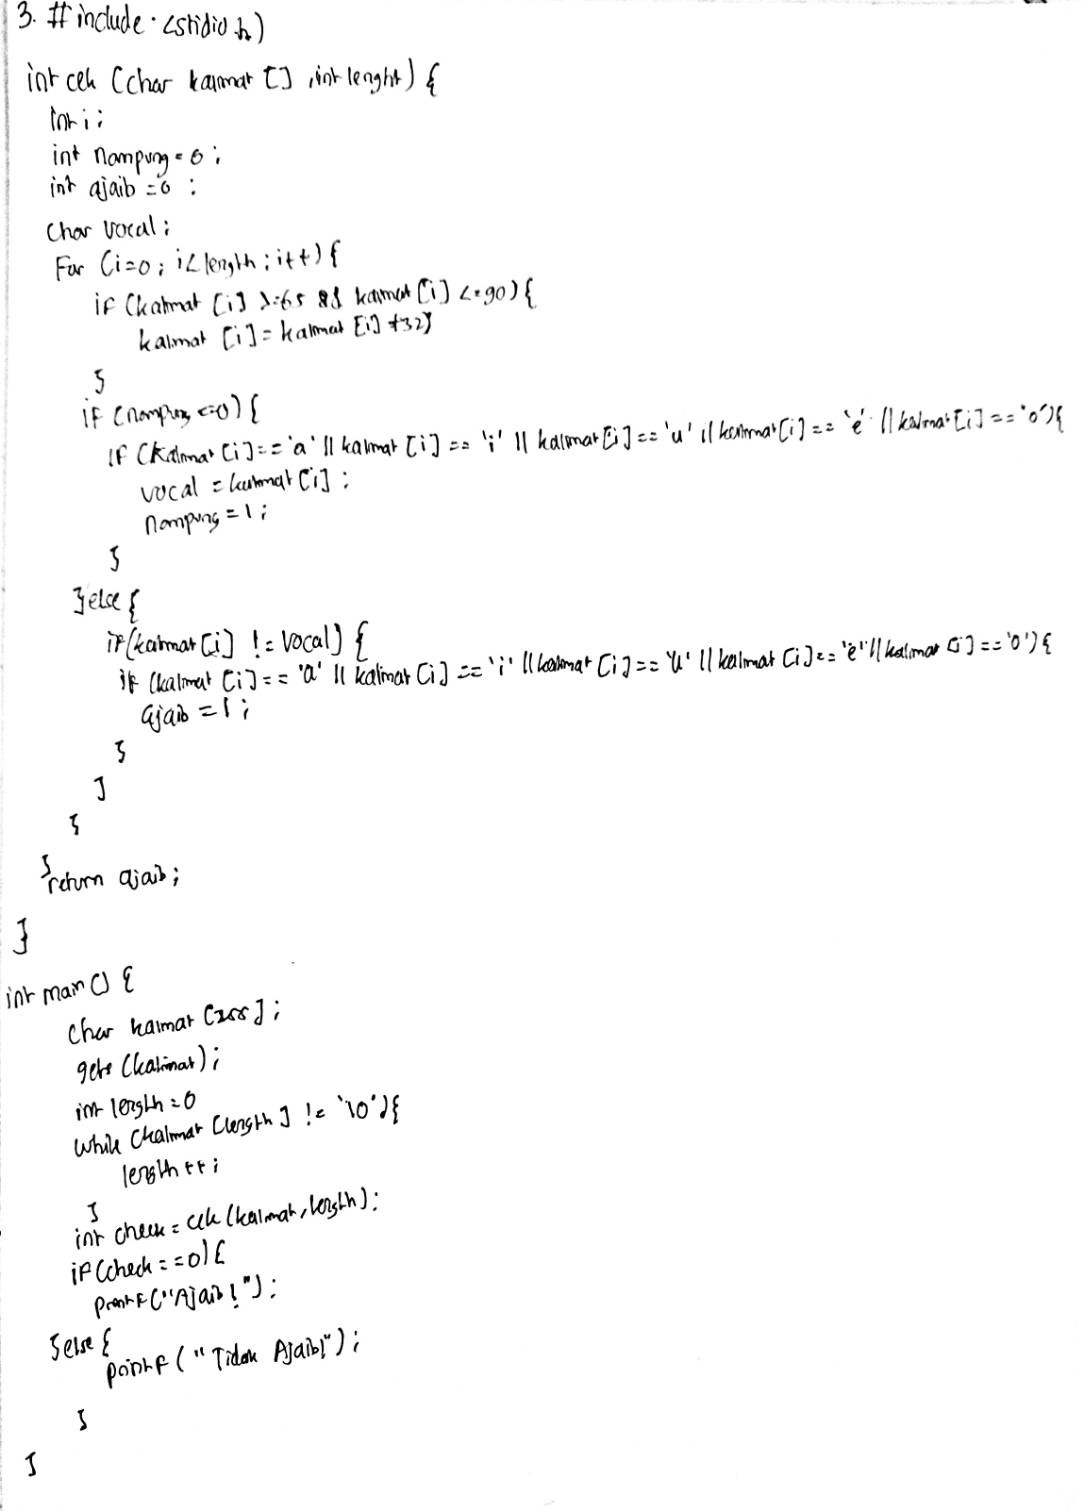 3. #include <stdio.h)
int cek (char kalimat [] , int lenght) {
int i;
int nampung = 0 ;
int ajaib = 0 ;
char vocal ;
For (i=0 ; i< length ; i++) {
if (kalimat [i] >=65 && kalimat [i] <=90) {
kalimat [i] = kalimat [i] +32}
}
if (nampung ==0) {
if (kalimat [i] == 'a' || kalimat [i] == 'i' || kalimat [i] == 'u' || kalimat [i] == 'e' || kalimat [i] == 'o') {
vocal = kalimat [i] ;
nampung = 1 ;
}
} else {
if (kalimat [i] != vocal) {
if (kalimat [i] == 'a' || kalimat [i] == 'i' || kalimat [i] == 'u' || kalimat [i] == 'e' || kalimat [i] == 'o') {
ajaib = 1 ;
}
}
}
}
return ajaib ;
}
int main () {
char kalimat [255] ;
gets (kalimat) ;
int length = 0
while (kalimat [length] != '\0') {
length ++ ;
}
int check = cek (kalimat, length) ;
if (check == 0) {
printf ("Ajaib !") ;
} else {
printf ( "Tidak Ajaib!") ;
}
}